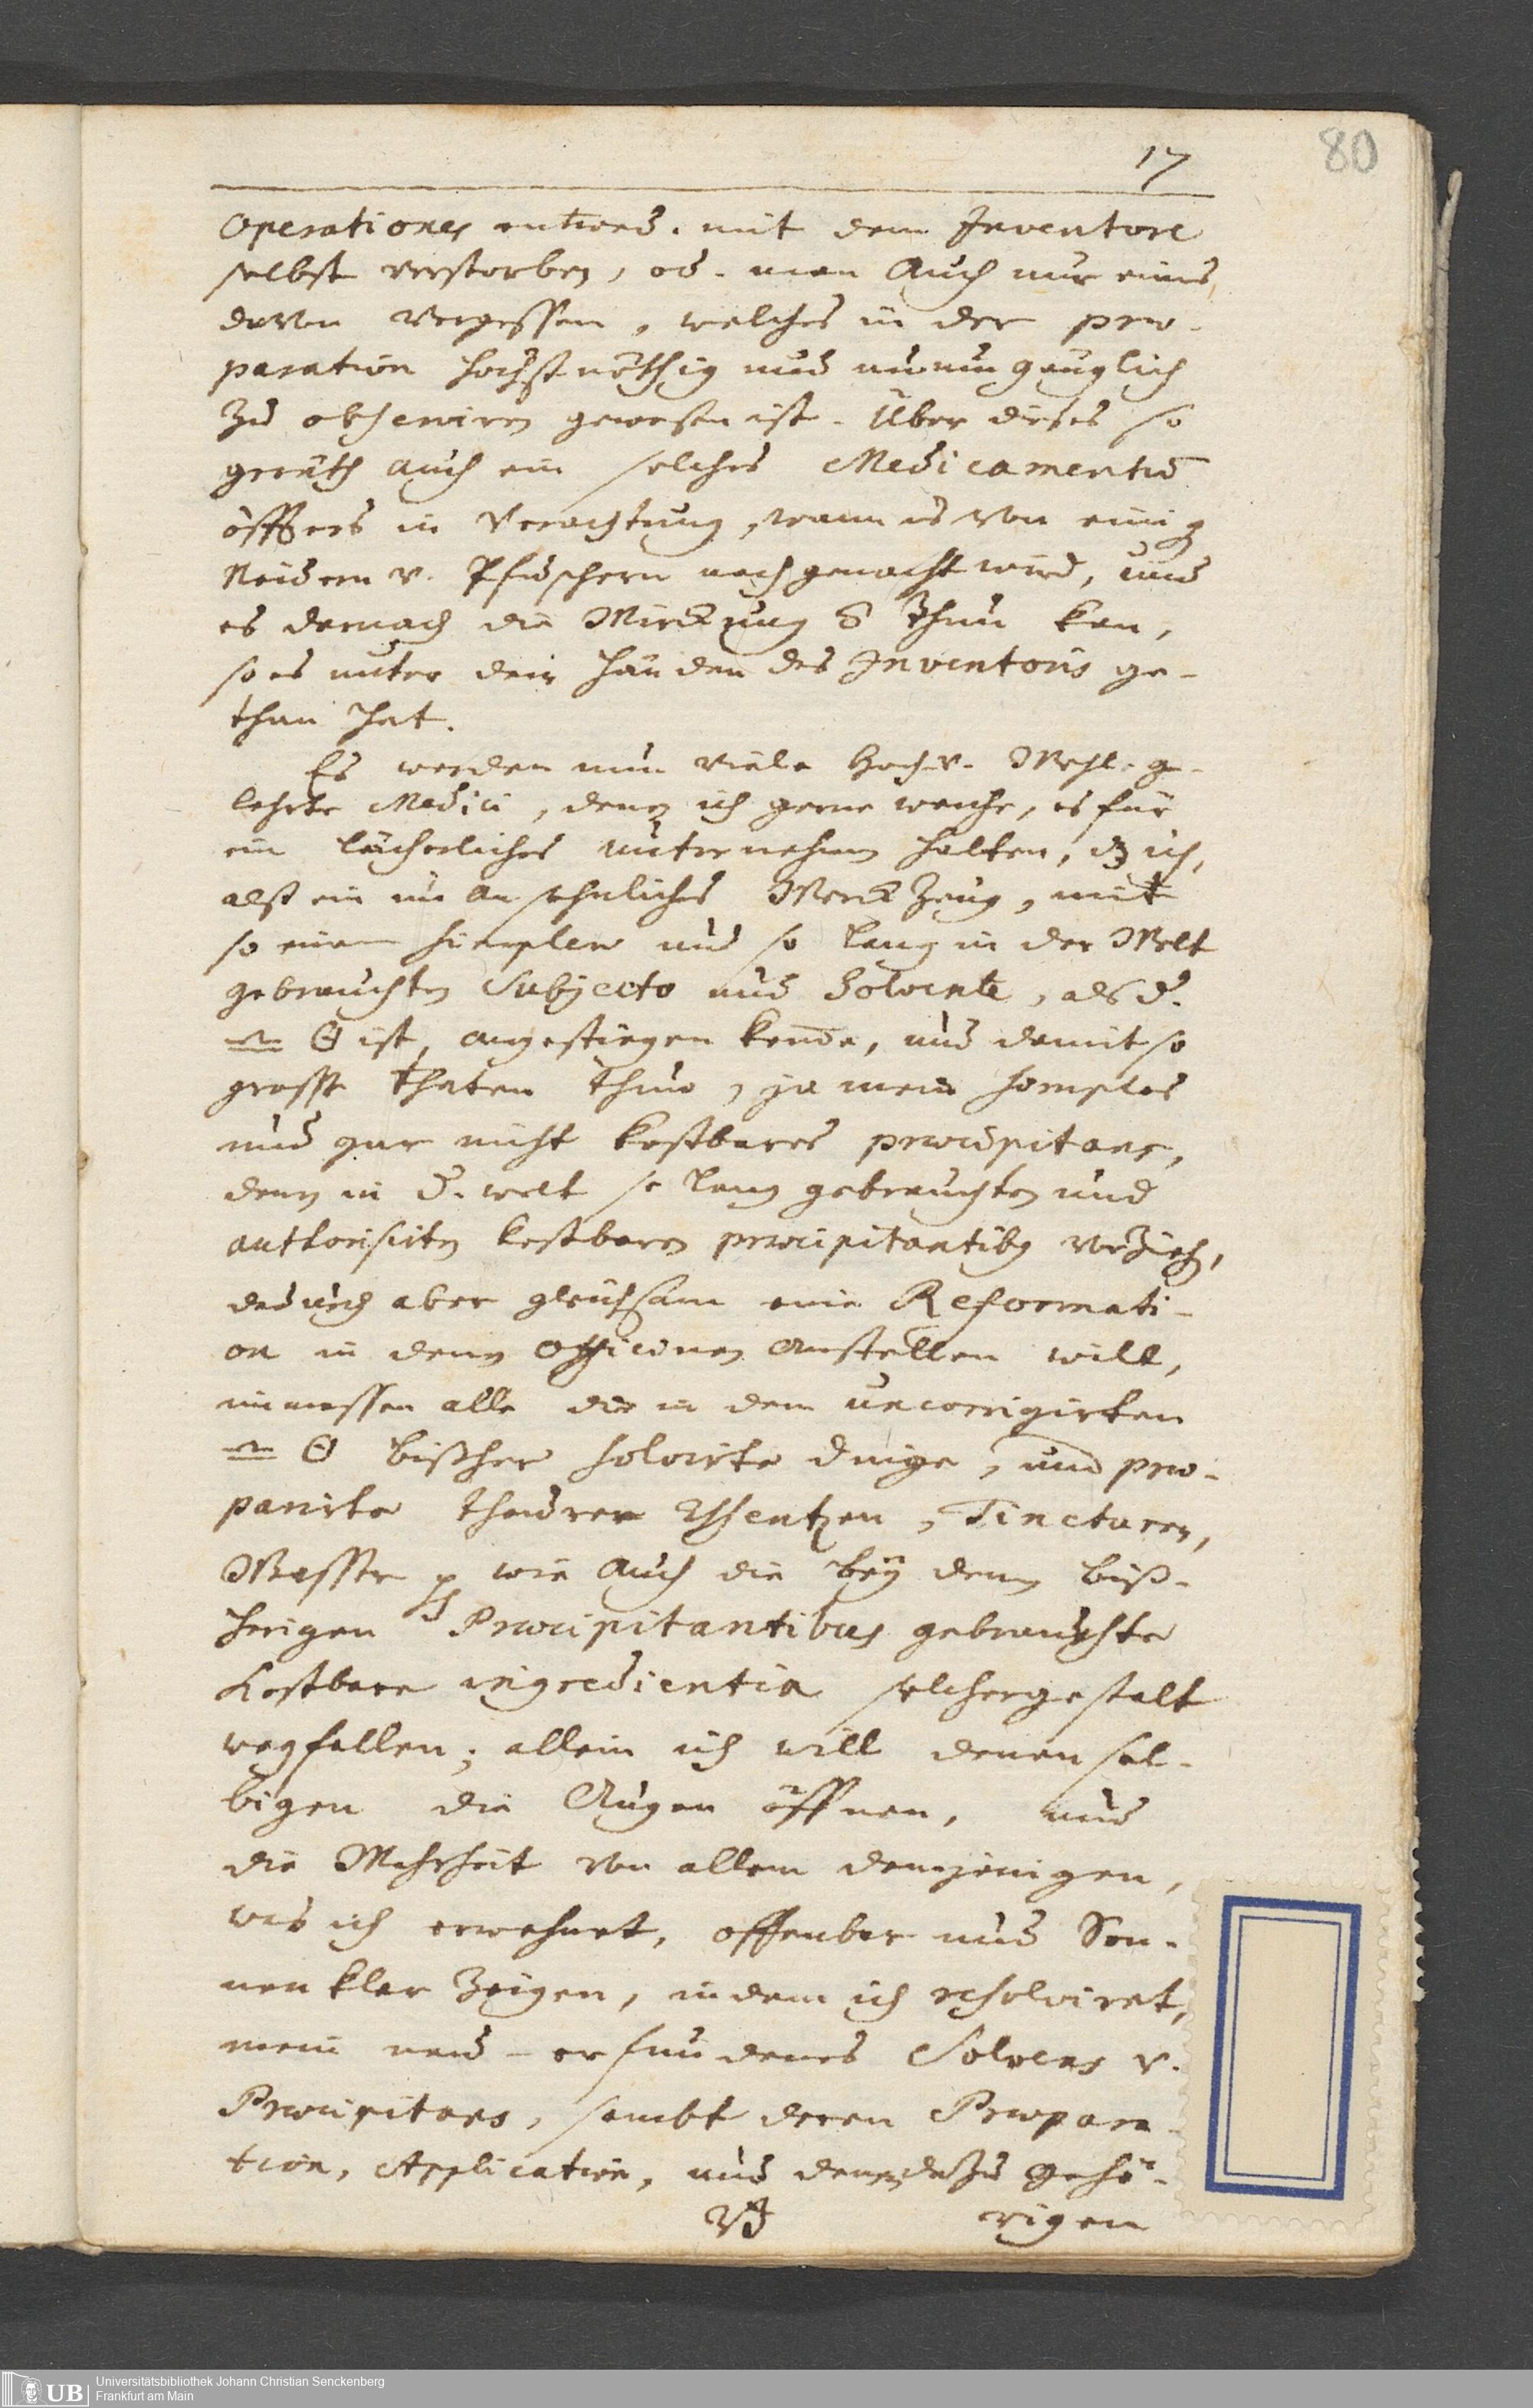 17
80
Operationes entwed. mit dem Inventore
selbst verstorben, od. man Auch nur eins
davon vergessen, welches in der præ-
paration höchstnöthig und unumgänglich
zu observiren gewesen ist. Über dieses so
geräth auch ein solches Medicamentũ
öffters in Verachtung, wann es von einig
Neidern v. Pfuschern nachgemacht wird, und
es darnach die Würckung ñ thun kan,
so es unter dein Händen des Inventoris ge-
than hat.
Es werden nun viele Hoch- v. Wohl- ge-
lehrte Medici, denen ich gerne weiche, es für
ein lächerliches unternehmen halten, dz ich,
alß ein unansehnliches Werckzeug, mit
so einem simplen und so lang in der Welt
gebrauchten Subjecto und Solvente, als d.
🜊 🜔 ist, angestiegen komme, und damit so
grosse thaten thue, ja mein simples
und gar nicht kostbares præcipitans,
denen in d. welt so lang gebrauchten und
authorisirten kostbaren præcipitantibus vorzieh,
dadurch aber gleichsam eine Reformati-
on in denen Officinen anstellen will,
immassen alle die in dem uncorrigirten
🜔 bißher solvirte Dinge, und præ-
parirte theure Essentzen, Tincturen,
Wasser wie Auch die bey denen biß-
herigen Præcipitantibus gebrauchte
kostbare ingredientia solchergestalt
wegfallen; allein ich will denensel-
bigen die Augen öffnen, und
die Wahrheit von allem demjenigen,
was ich erwehnet, offenbar und Son-
nen klar zeigen, indem ich resolviret,
mein neu-erfundenes Solvens v.
Præcipitans, sambt deren Præpara-
tion, Application, und denen dazu gehö-
rigen
UB Universitätsbibliothek Johann Christian Senckenberg
Frankfurt am Main